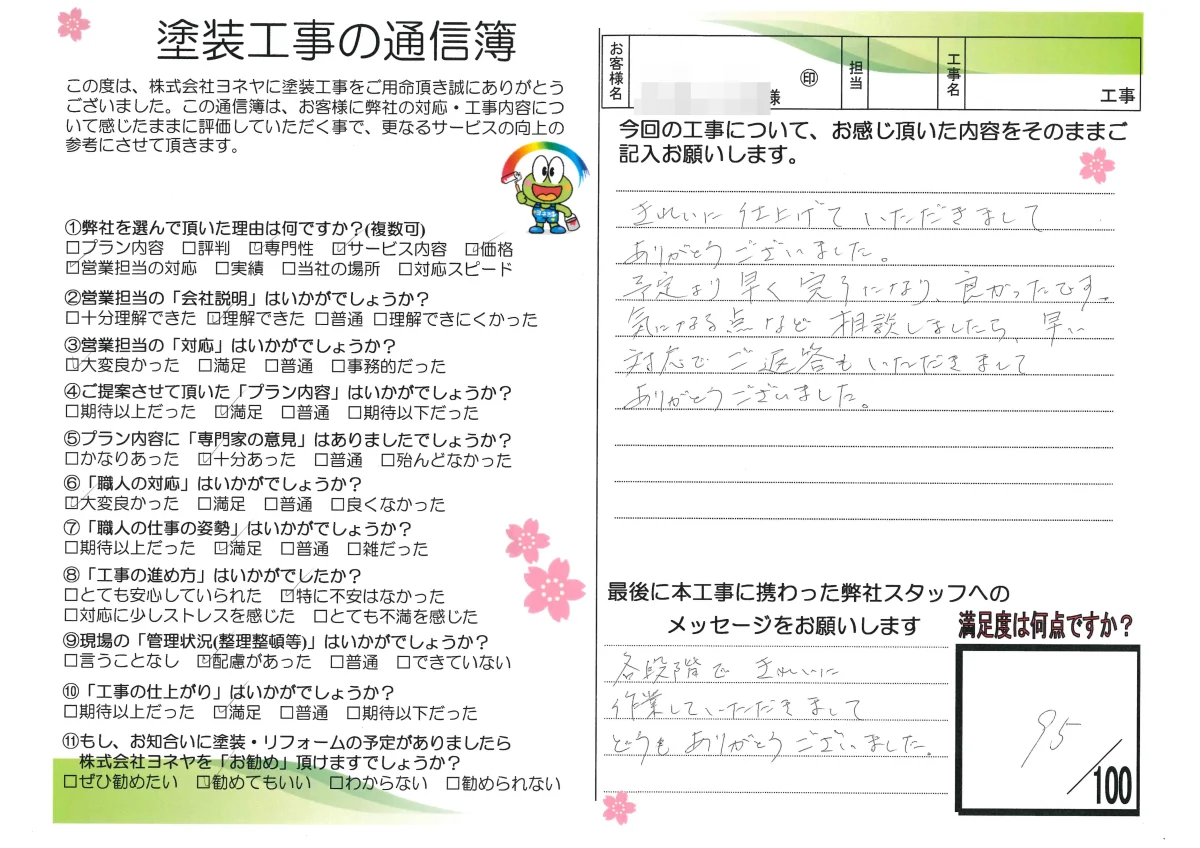 塗装工事の通信簿
この度は、株式会社ヨネヤに塗装工事をご用命頂き誠にありがとう
ございました。この通信簿は、お客様に弊社の対応・工事内容につ
いて感じたままに評価していただく事で、更なるサービスの向上の
参考にさせて頂きます。
①弊社を選んで頂いた理由は何ですか？(複数可)
□プラン内容 □評判 ☑専門性 ☑サービス内容 ☑価格
☑営業担当の対応 □実績 □当社の場所 □対応スピード
②営業担当の「会社説明」はいかがでしょうか？
□十分理解できた ☑理解できた □普通 □理解できにくかった
③営業担当の「対応」はいかがでしょうか？
☑大変良かった □満足 □普通 □事務的だった
④ご提案させて頂いた「プラン内容」はいかがでしょうか？
□期待以上だった ☑満足 □普通 □期待以下だった
⑤プラン内容に「専門家の意見」はありましたでしょうか？
□かなりあった ☑十分あった □普通 □殆んどなかった
⑥「職人の対応」はいかがでしょうか？
☑大変良かった □満足 □普通 □良くなかった
⑦「職人の仕事の姿勢」はいかがでしょうか？
□期待以上だった ☑満足 □普通 □雑だった
⑧「工事の進め方」はいかがでしたか？
□とても安心していられた ☑特に不安はなかった
□対応に少しストレスを感じた □とても不満を感じた
⑨現場の「管理状況(整理整頓等)」はいかがでしょうか？
□言うことなし ☑配慮があった □普通 □できていない
⑩「工事の仕上がり」はいかがでしょうか？
□期待以上だった ☑満足 □普通 □期待以下だった
⑪もし、お知合いに塗装・リフォームの予定がありましたら
株式会社ヨネヤを「お勧め」頂けますでしょうか？
□ぜひ勧めたい ☑勧めてもいい □わからない □勧められない
お客様名 様 ㊞ 担当 工事名 工事
今回の工事について、お感じ頂いた内容をそのままご
記入お願いします。
きれいに仕上げていただきまして
ありがとうございました。
予定より早く完了になり、良かったです。
気になる点など相談しましたら、早い
対応でご返答もいただきまして
ありがとうございました。
最後に本工事に携わった弊社スタッフへの
メッセージをお願いします
各段階できれいに
作業していただきまして
どうもありがとうございました。
満足度は何点ですか？
95/100